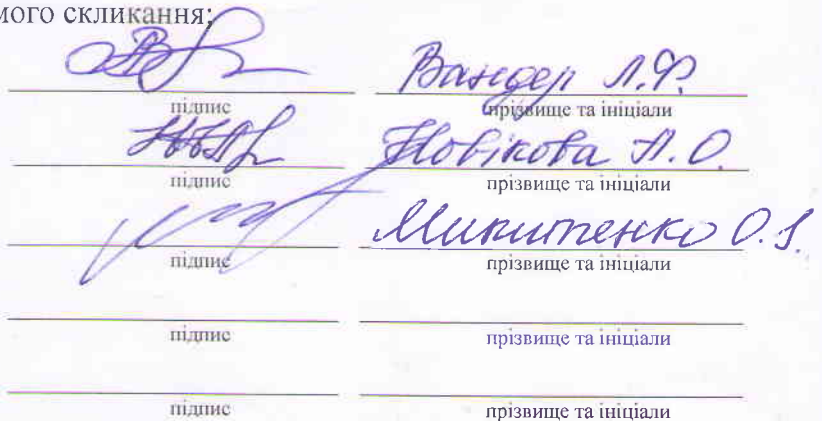 мого скликання;
Вандер Л.Ф.
підпис прізвище та ініціали
Новікова Л.О.
підпис прізвище та ініціали
Микитенко О.І.
підпис прізвище та ініціали
підпис прізвище та ініціали
підпис прізвище та ініціали